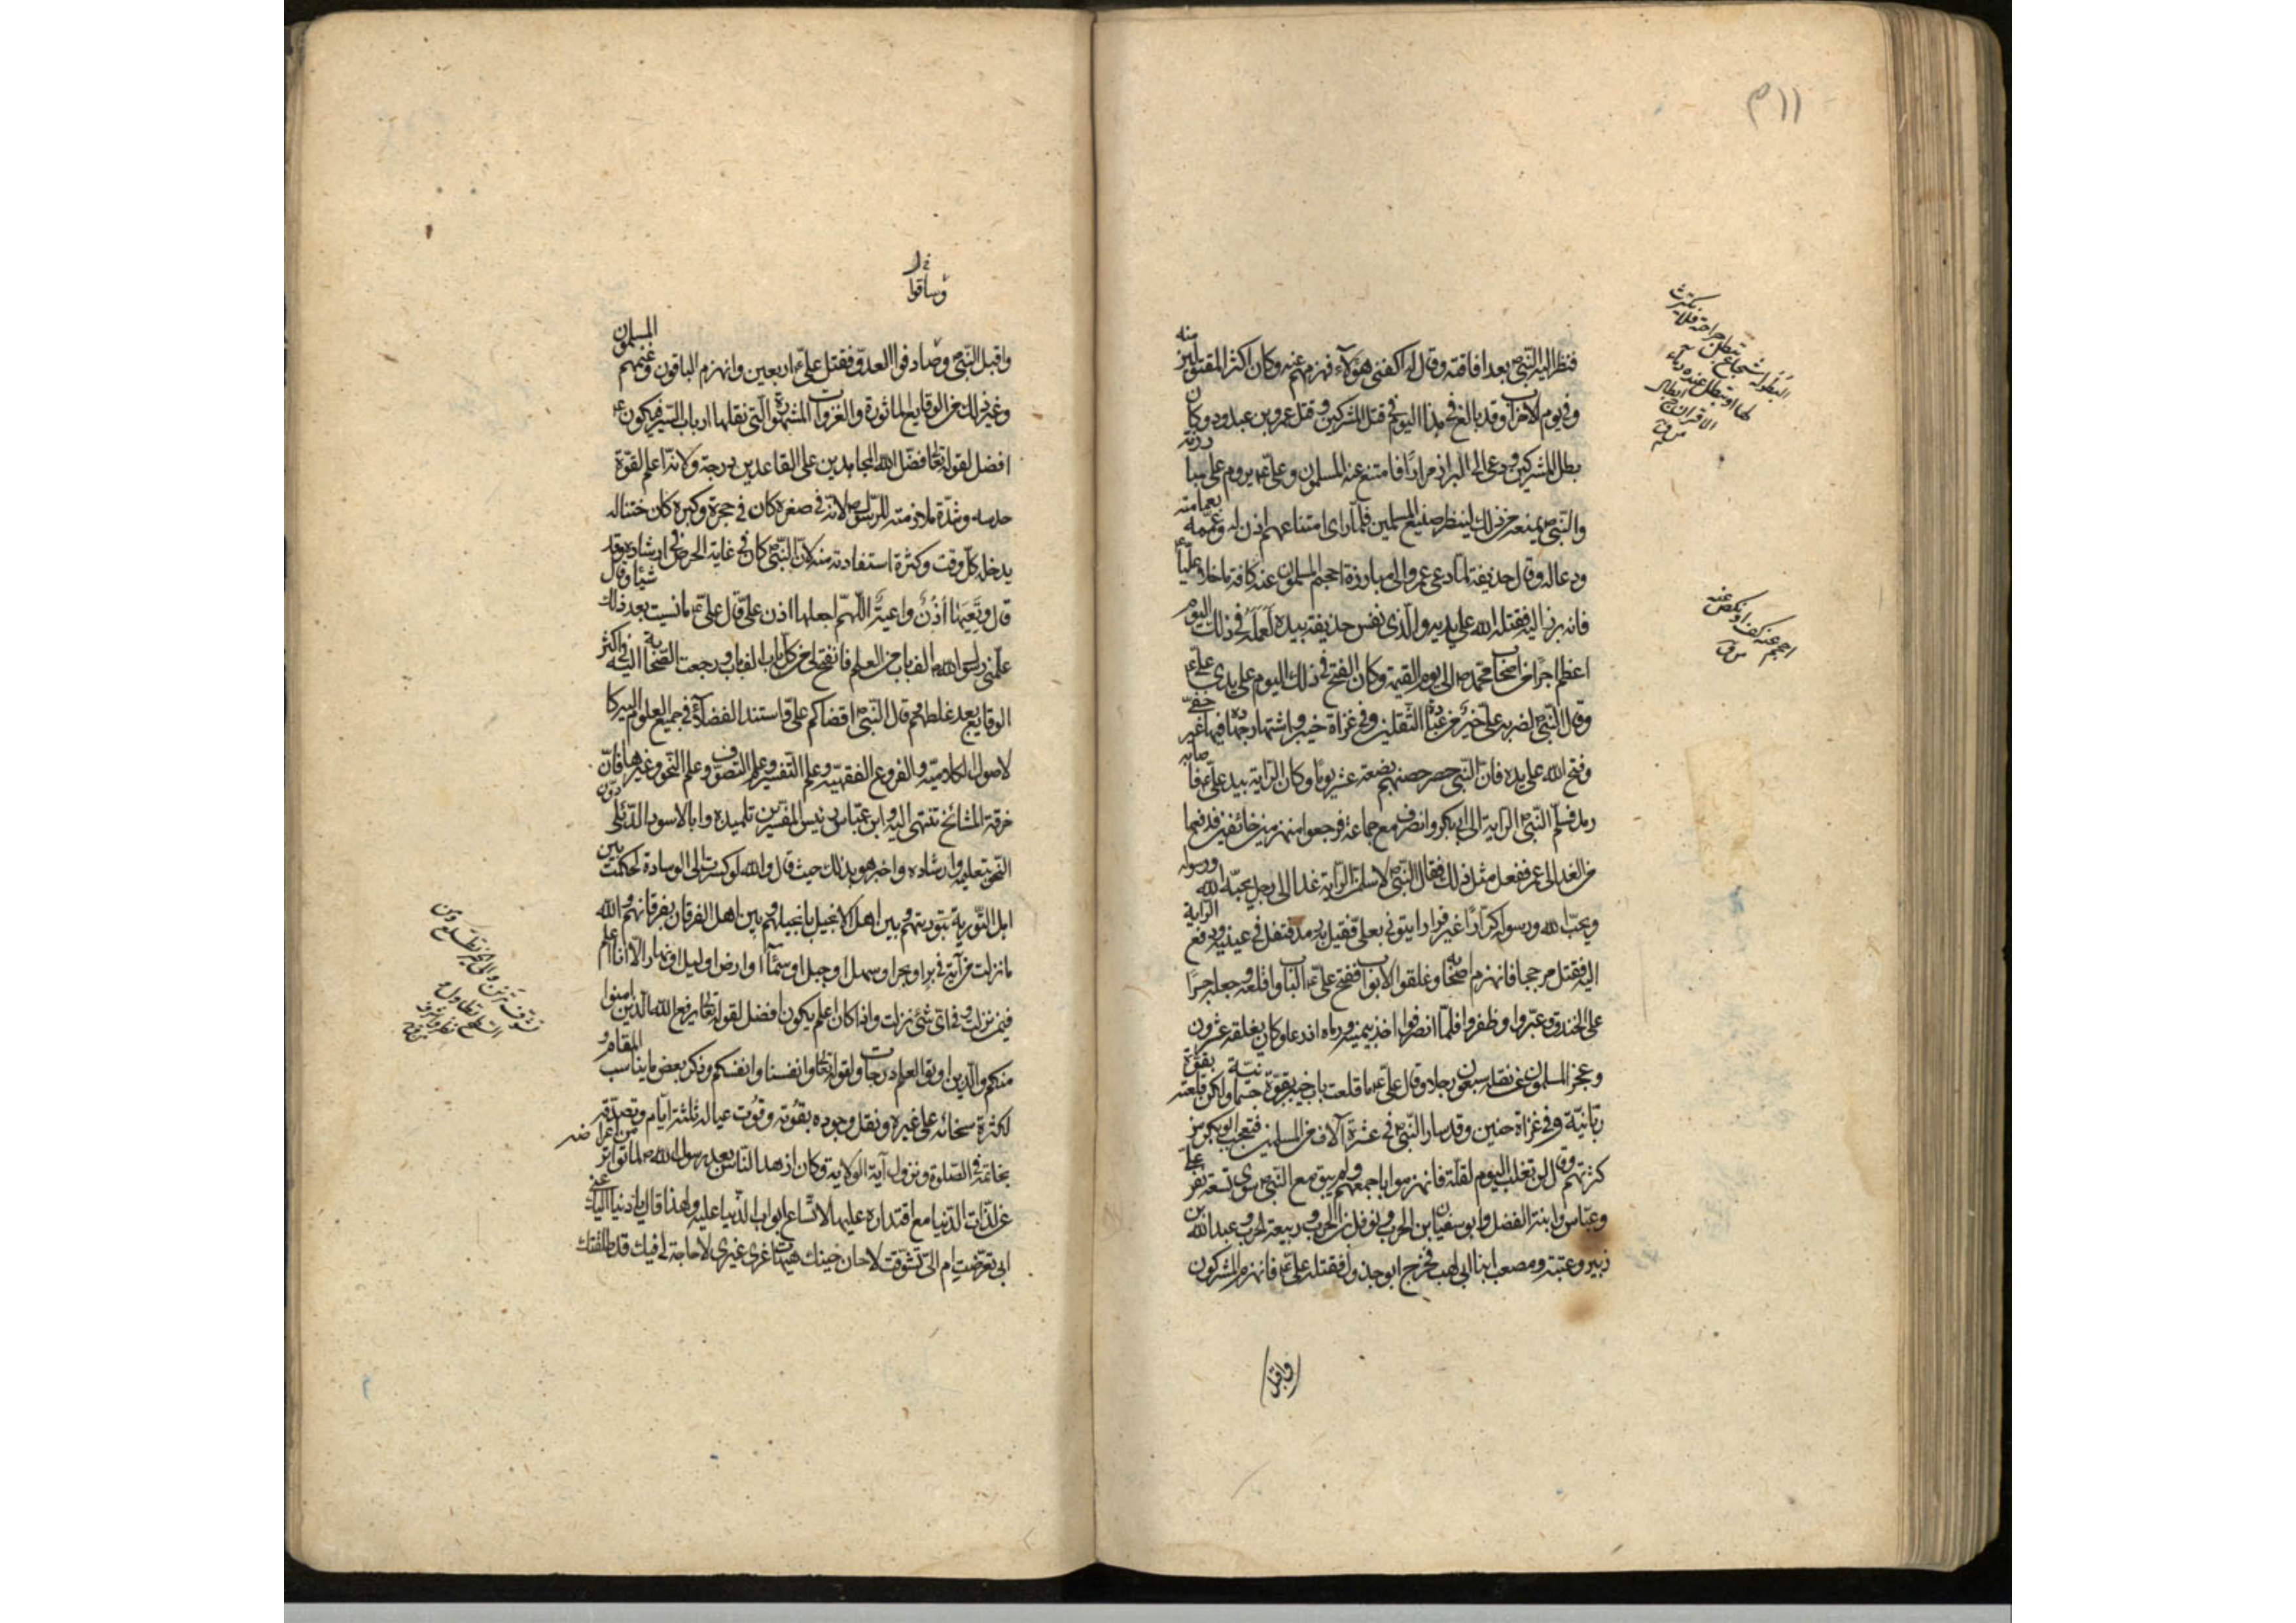 ١١٣
فنظر اليه النبى ص بعد افاقته وقال له اكفنى هؤلاء فهزمهم عنه وكان اكثر المقتولين منه
وفى يوم الاحزاب وقد بالغ فى هذا اليوم فى قتل المشركين وقتل عمرو بن عبدود وكان
بطل المشركين ودعى الى البراز مرارًا فامتنع عنه المسلمون وعلى ع يروم مبارزته
والنبى ص يمنعه من ذلك لينظر صنيع المسلمين فلما راى امتناعهم اذن له وعممه بعمامته
ودعا له وقال حذيفة لما دعى عمرو الى المبارزة احجم المسلمون عنه كافة ما خلا عليّاً ع
فانه برز اليه فقتله الله على يديه والذى نفس حذيفة بيده لعمله فى ذلك اليوم
اعظم اجرًا من اصحاب محمد ص الى يوم القيمة وكان الفتح فى ذلك اليوم على يدى على ع
وقال النبى لضربة على خير من عبادة الثقلين وفى غزاة خيبر واشتهار جهاده فيها غير خفى
وفتح الله على يده فان النبى حصر حصنهم بضعة عشر يومًا وكان الراية بيد على ع فاصابه
رمد فسلم النبى ص الراية الى ابى بكر وانصرف مع جماعة فرجعوا منهزمين خائفين فدفعها
من الغد الى عمر ففعل مثل ذلك فقال النبى ص لاسلمن الراية غدا الى رجل يحبه الله ورسوله
ويحب الله ورسوله كرارًا غير فرار ايتونى بعلى فقيل به رمد فتفل فى عينيه ودفع الراية
اليه فقتل مرحبا فانهزم اصحابه وغلقوا الابواب ففتح على ع الباب واقتلعه وجعله جسرًا
على الخندق وعبروا وظفروا فلما انصرفوا اخذ بيمينه ورماه اذرعا وكان يغلقه عشرون
وعجز المسلمون عن نقله سبعون رجلا وقال على ع ما قلعت باب خيبر بقوة جسمانية ولكن قلعته بقوة
ربانية وفى غزاة حنين وقد سار النبى ص فى عشرة آلاف من المسلمين فتعجب ابوبكر من
كثرتهم وقال لن تغلب اليوم لقلة فانهزموا باجمعهم ولم يبق مع النبى ص سوى تسعة نفر على
وعباس وابنه الفضل وابو سفيان ابن الحرب ونوفل بن الحرب وربيعة الحرب وعبد الله بن
زبير وعتبة ومصعب ابنا ابى لهب فخرج ابو جذول فقتله على ع فانهزم المشركون
واقبل
احجم عنه كف او نكص عنه
ق
وساقوا
واقبل النبى ص وصادفوا العدو فقتل على ع اربعين وانهزم الباقون وغنمهم المسلمون
وغير ذلك من الوقايع الماثورة والغزوات المشهورة التى نقلها ارباب السير فيكون ع
افضل لقوله تعالى فضل الله المجاهدين على القاعدين درجة ولانه اعلم لقوة
حدسه وشدة ملازمته للرسول ص لانه فى صغره كان فى حجره وكبره كان ختنا له
يدخله كل وقت وكثرة استفادته منه لان النبى ص كان فى غاية الحرص فى ارشاده وقد
قال وتعيها أذُنٌ واعيةٌ اللهم اجعلها اذن على قال على ع ما نسيت بعد ذلك شيئا وقال
علمنى رسول الله ص الف باب من العلم فانفتح لى من كل باب الف باب ورجعت الصحابة اليه فى اكثر
الوقايع بعد غلطهم وقال النبى ص اقضاكم على واستند الفضلاء فى جميع العلوم اليه كا
لاصول الكلامية والفروع الفقهية وعلم التفسير وعلم التصوف وعلم النحو وغيرها فان
خرقة المشائخ تنتهى اليه وابن عباس رئيس المفسرين تلميذه وابا الاسود الدئلى دون
النحو بتعليمه وارشاده واخبر هو بذلك حيث قال والله لو كسرت لى الوسادة لحكمت بين
اهل التورية بتوريتهم وبين اهل الانجيل بانجيلهم وبين اهل الفرقان بفرقانهم والله
ما نزلت من آية فى بر او بحر او سهل او جبل او سماء او ارض او ليل او نهار الا انا اعلم
فيمن نزلت وفى اى شئ نزلت واذا كان اعلم يكون افضل لقوله تعالى يرفع الله الذين امنوا
منكم والذين اوتوا العلم درجات ولقوله تعالى وانفسنا وانفسكم وذكر بعض ما يناسب المقام و
لكثرة سخائه على غيره ونقل وجوده بقوته وقوت عياله ثلثة ايام وتصدقه
بخاتمه فى الصلوة ونزول آية الولاية وكان ازهد الناس بعد رسول الله ص لما تواتر من اعراضه
عن لذات الدنيا مع اقتداره عليها لاتساع ابواب الدنيا عليه ولهذا قال يا دنيا اليك عنى
ابى تعرضت ام الى تشوقت لا حان حينك هيهات غرى غيرى لا حاجة لى فيك قد طلقتك